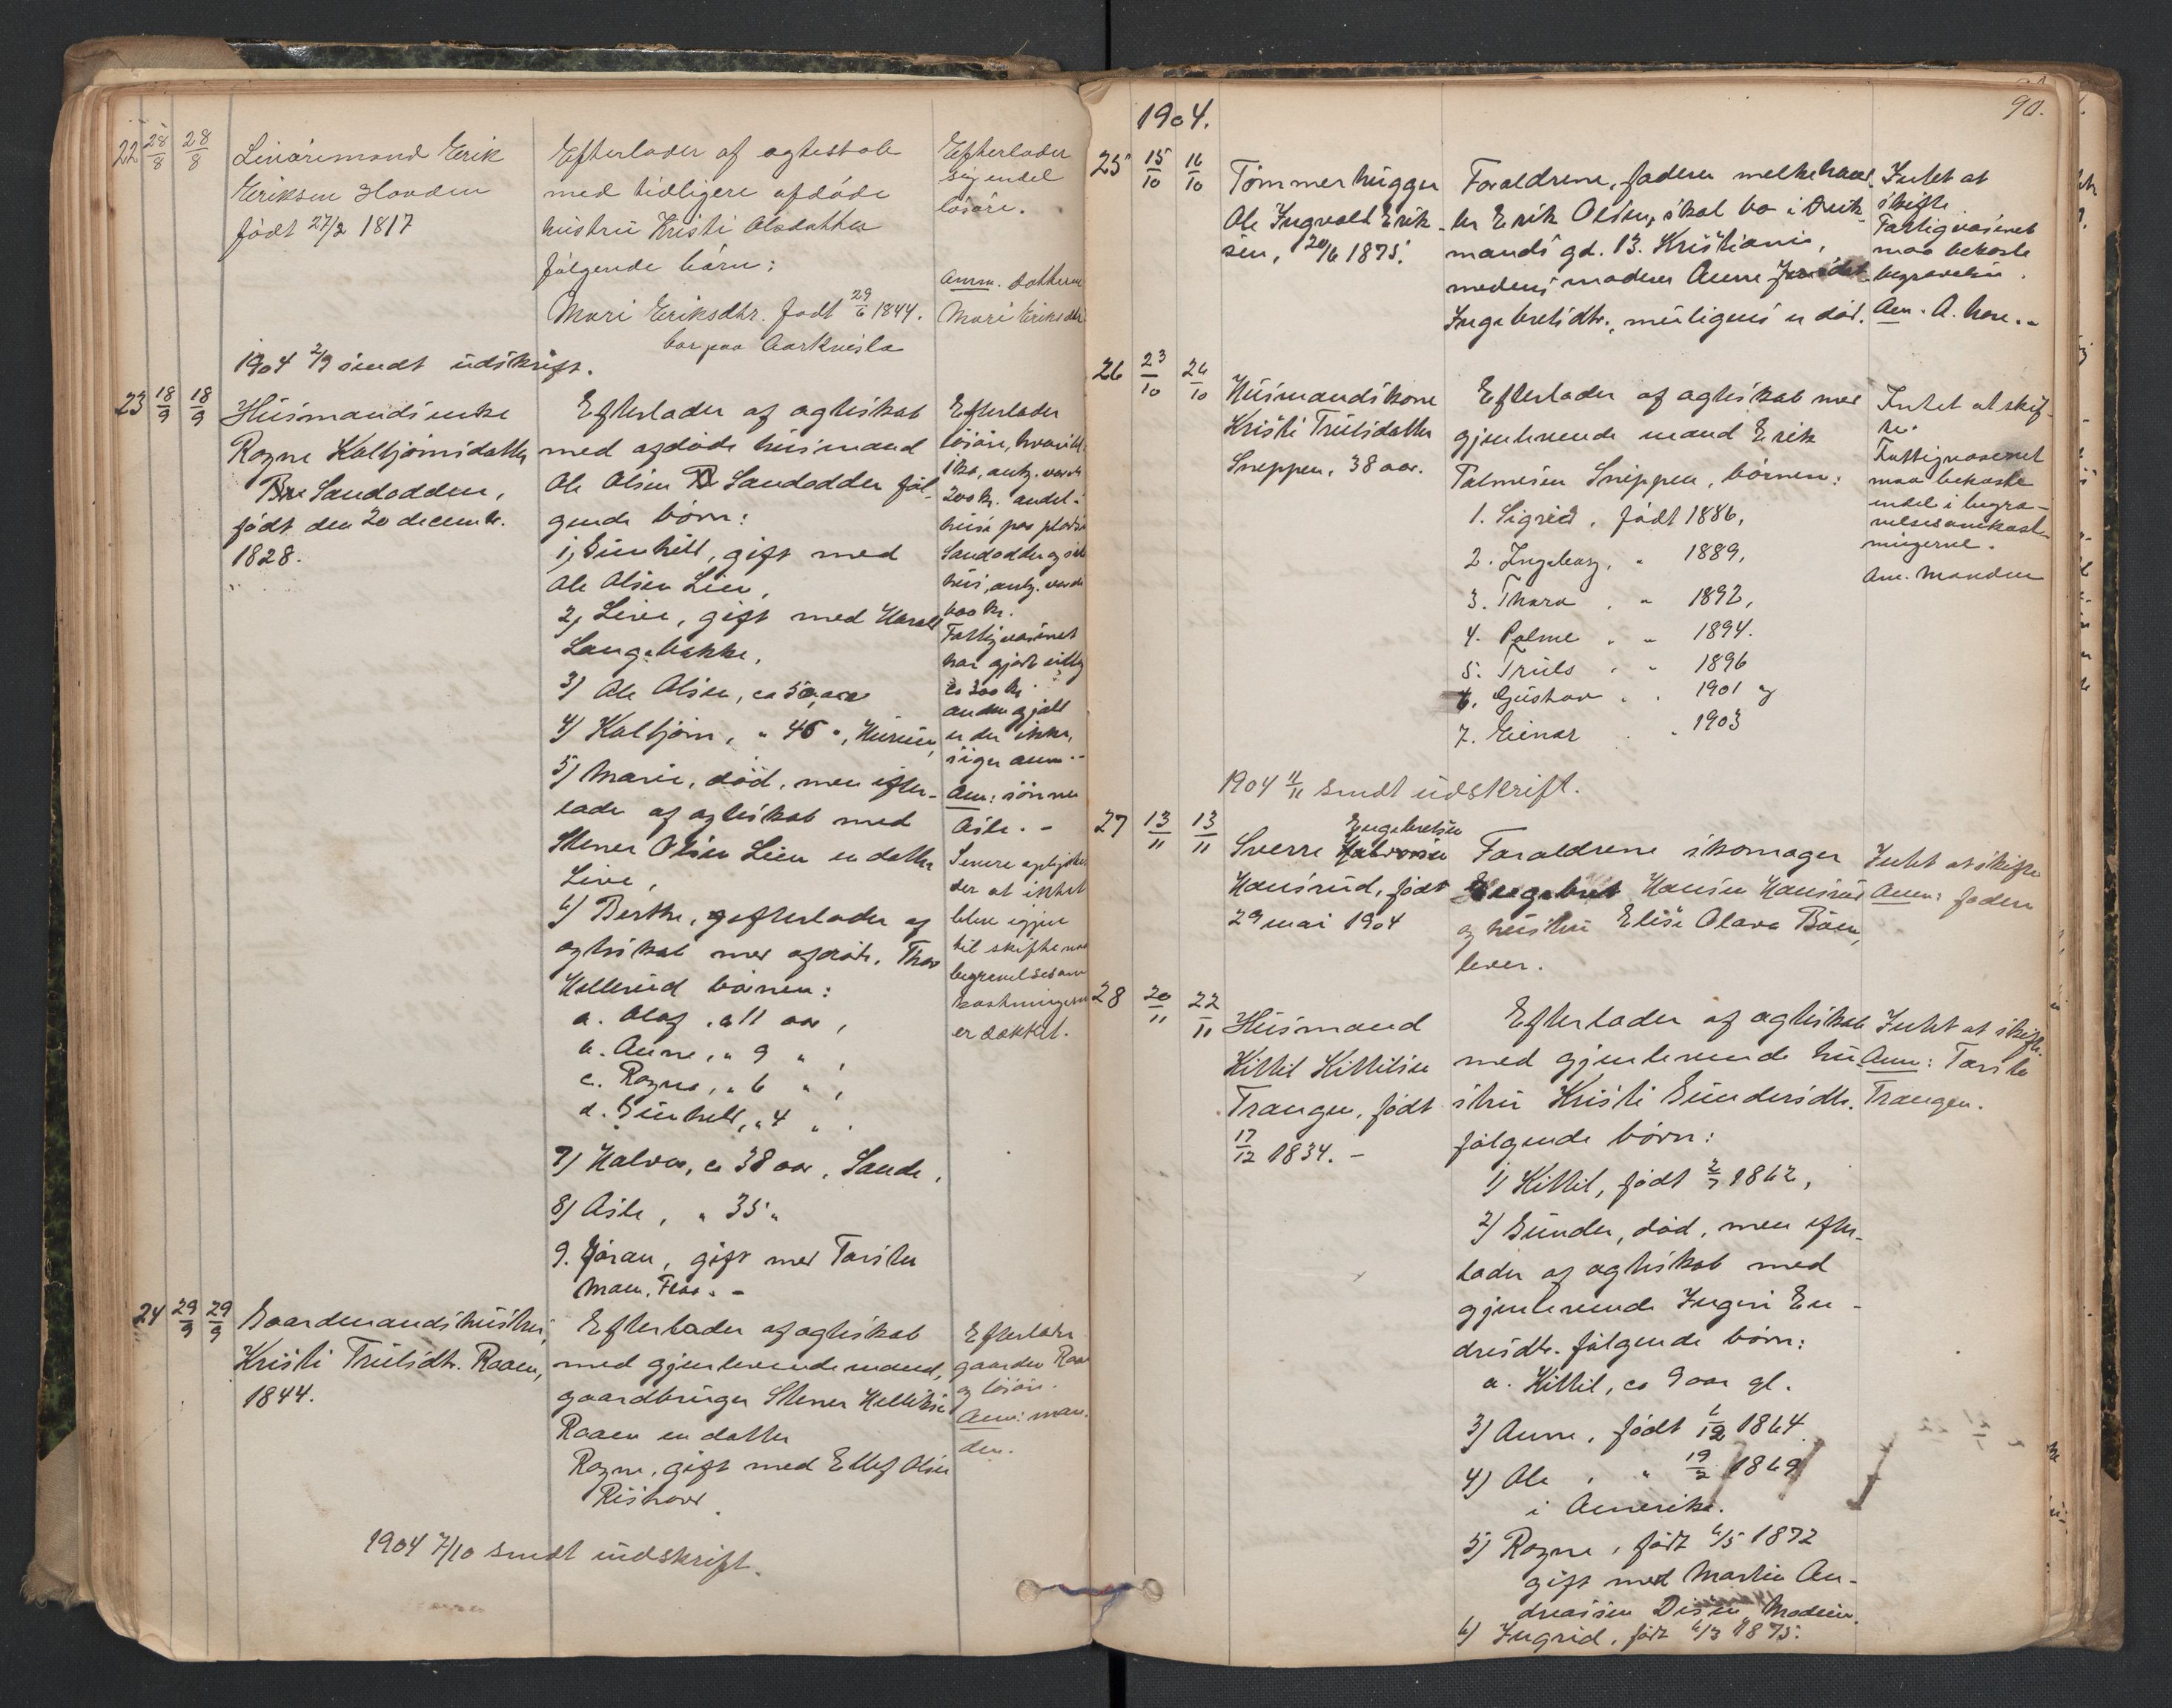 22 28/8 28/8
Erik
Eriksen Hovden
født 27/2 1817
Efterlader af ægteskab
med tidligere afdøde
hustru Kristi Olsdatter
følgende børn:
Mari Eriksdtr. født 29/6 1844.
bor paa
Efterlader
sig endel
løsøre.
Anm. datteren
Mari Eriksdtr
1904 2/9 sendt udskrift.
23 18/9 18/9
Husmandsenke
Ragne Kolbjørnsdatter
Sandodden,
født den 20 decemb.
1828.
med afdøde husmand
Ole Olsen Sandodden føl-
gende børn:
1, Gunhild, gift med
Ole Olsen Lien,
2, Live, gift med Harald
Langebakke,
3) Ole Olsen, ca 50 aar
4) Kolbjørn, " 45 ",
5) Marie, død, men efter-
lader af ægteskab med
Stener Olsen Lien en datter
Live,
6) Berthe, efterlader af
ægteskab med Thor
Hellerud børnene:
a. Olaf, ca 11 aar,
b. Anne, " 9 " ,
c. Ragne, " 6 " ,
d. Gunhild, " 4 " .
7) Halvor, ca 38 aar, Sande,
8) Asle, " 35 "
9. Jøran, gift med Torsten
Moen, Flaa. -
Efterlader
løsøre,
200 kr. andel i
hus paa pladsen
Sandodden
hus, antg. værdi
600 kr.
Fattigvæsenet
har gjort udlæg
ca 300 kr.
anden gjæld
er der ikke,
siger anm. -
Anm: sønnen
Asle. -
Senere oplystes
der at intet
blev igjen
til skifte naar
begravelsesom
kostningerne
er dækket.
24 29/9 29/9
Gaardmandshustru,
Kristi Trulsdtr. Raaen,
1844.
Efterlader af ægteskab
med gjenlevende mand,
gaardbruger Stener Helliksen
Raaen en datter
Ragne, gift med Ellef Olsen
Efterlader
gaarden Raaen
og løsøre.
Anm: man-
den.
1904 7/10 sendt udskrift.
90.
1904.
25 15/10 16/10
Tømmerhugger
Ole Ingvald Erik-
sen, 20/6 1875.
Forældrene, faderen melkehand-
ler Erik Olsen, skal bo i
mands gd. 13. Kristiania,
medens moderen Anne
Ingebretsdtr., muligens er død.
Intet at
skifte
Fattigvæsenet
maa bekoste
begravelsen.
Anm. A.
26 23/10 26/10
Husmandskone
Kristi Trulsdatter
Sneppen, 38 aar.
Efterlader af ægteskab med
gjenlevende mand Erik
Palmesen Sneppen, børnene:
1. Sigrid, født 1886,
2. Ingeborg, " 1889,
3. Thora , " 1892,
4. Palme " " 1894.
5. Truls " " 1896
6. Gustav " " 1901 og
7. Einar " " 1903
Intet at skif-
te.
Fattigvæsenet
maa bekoste
endel i begra-
velsesomkost-
ningerne.
Anm. Manden
1904 4/11 sendt udskrift.
27 13/11 13/11
Engebretsen
Sverre
Hansrud, født
29 mai 1904
Forældrene skomager
Engebret Hansen Hansrud
og hustru Elise Olava Böen,
lever.
Intet at skifte
Anm: faderen
28 20/11 22/11
Husmand
Kittil Kittilsen
Trangen, født
17/12 1834. -
Efterlader af ægteskab
med gjenlevende hu-
stru Kristi Gundersdtr.
følgende børn:
1) Kittil, født 2/7 1862,
2) Gunder, død, men efter-
lader af ægteskab med
gjenlevende Ingri En-
dresdtr. følgende børn:
a. Kittil, ca 9 aar gl.
3) Anne, født 6/12 1864.
4) Ole , " 19/2 1869
i Amerika.
5) Ragne, født 4/5 1872
gift med Martin An-
dreassen Modum.
6) Ingrid, født 4/3 1875.
Intet at skifte.
Anm: Torsten
Trangen.